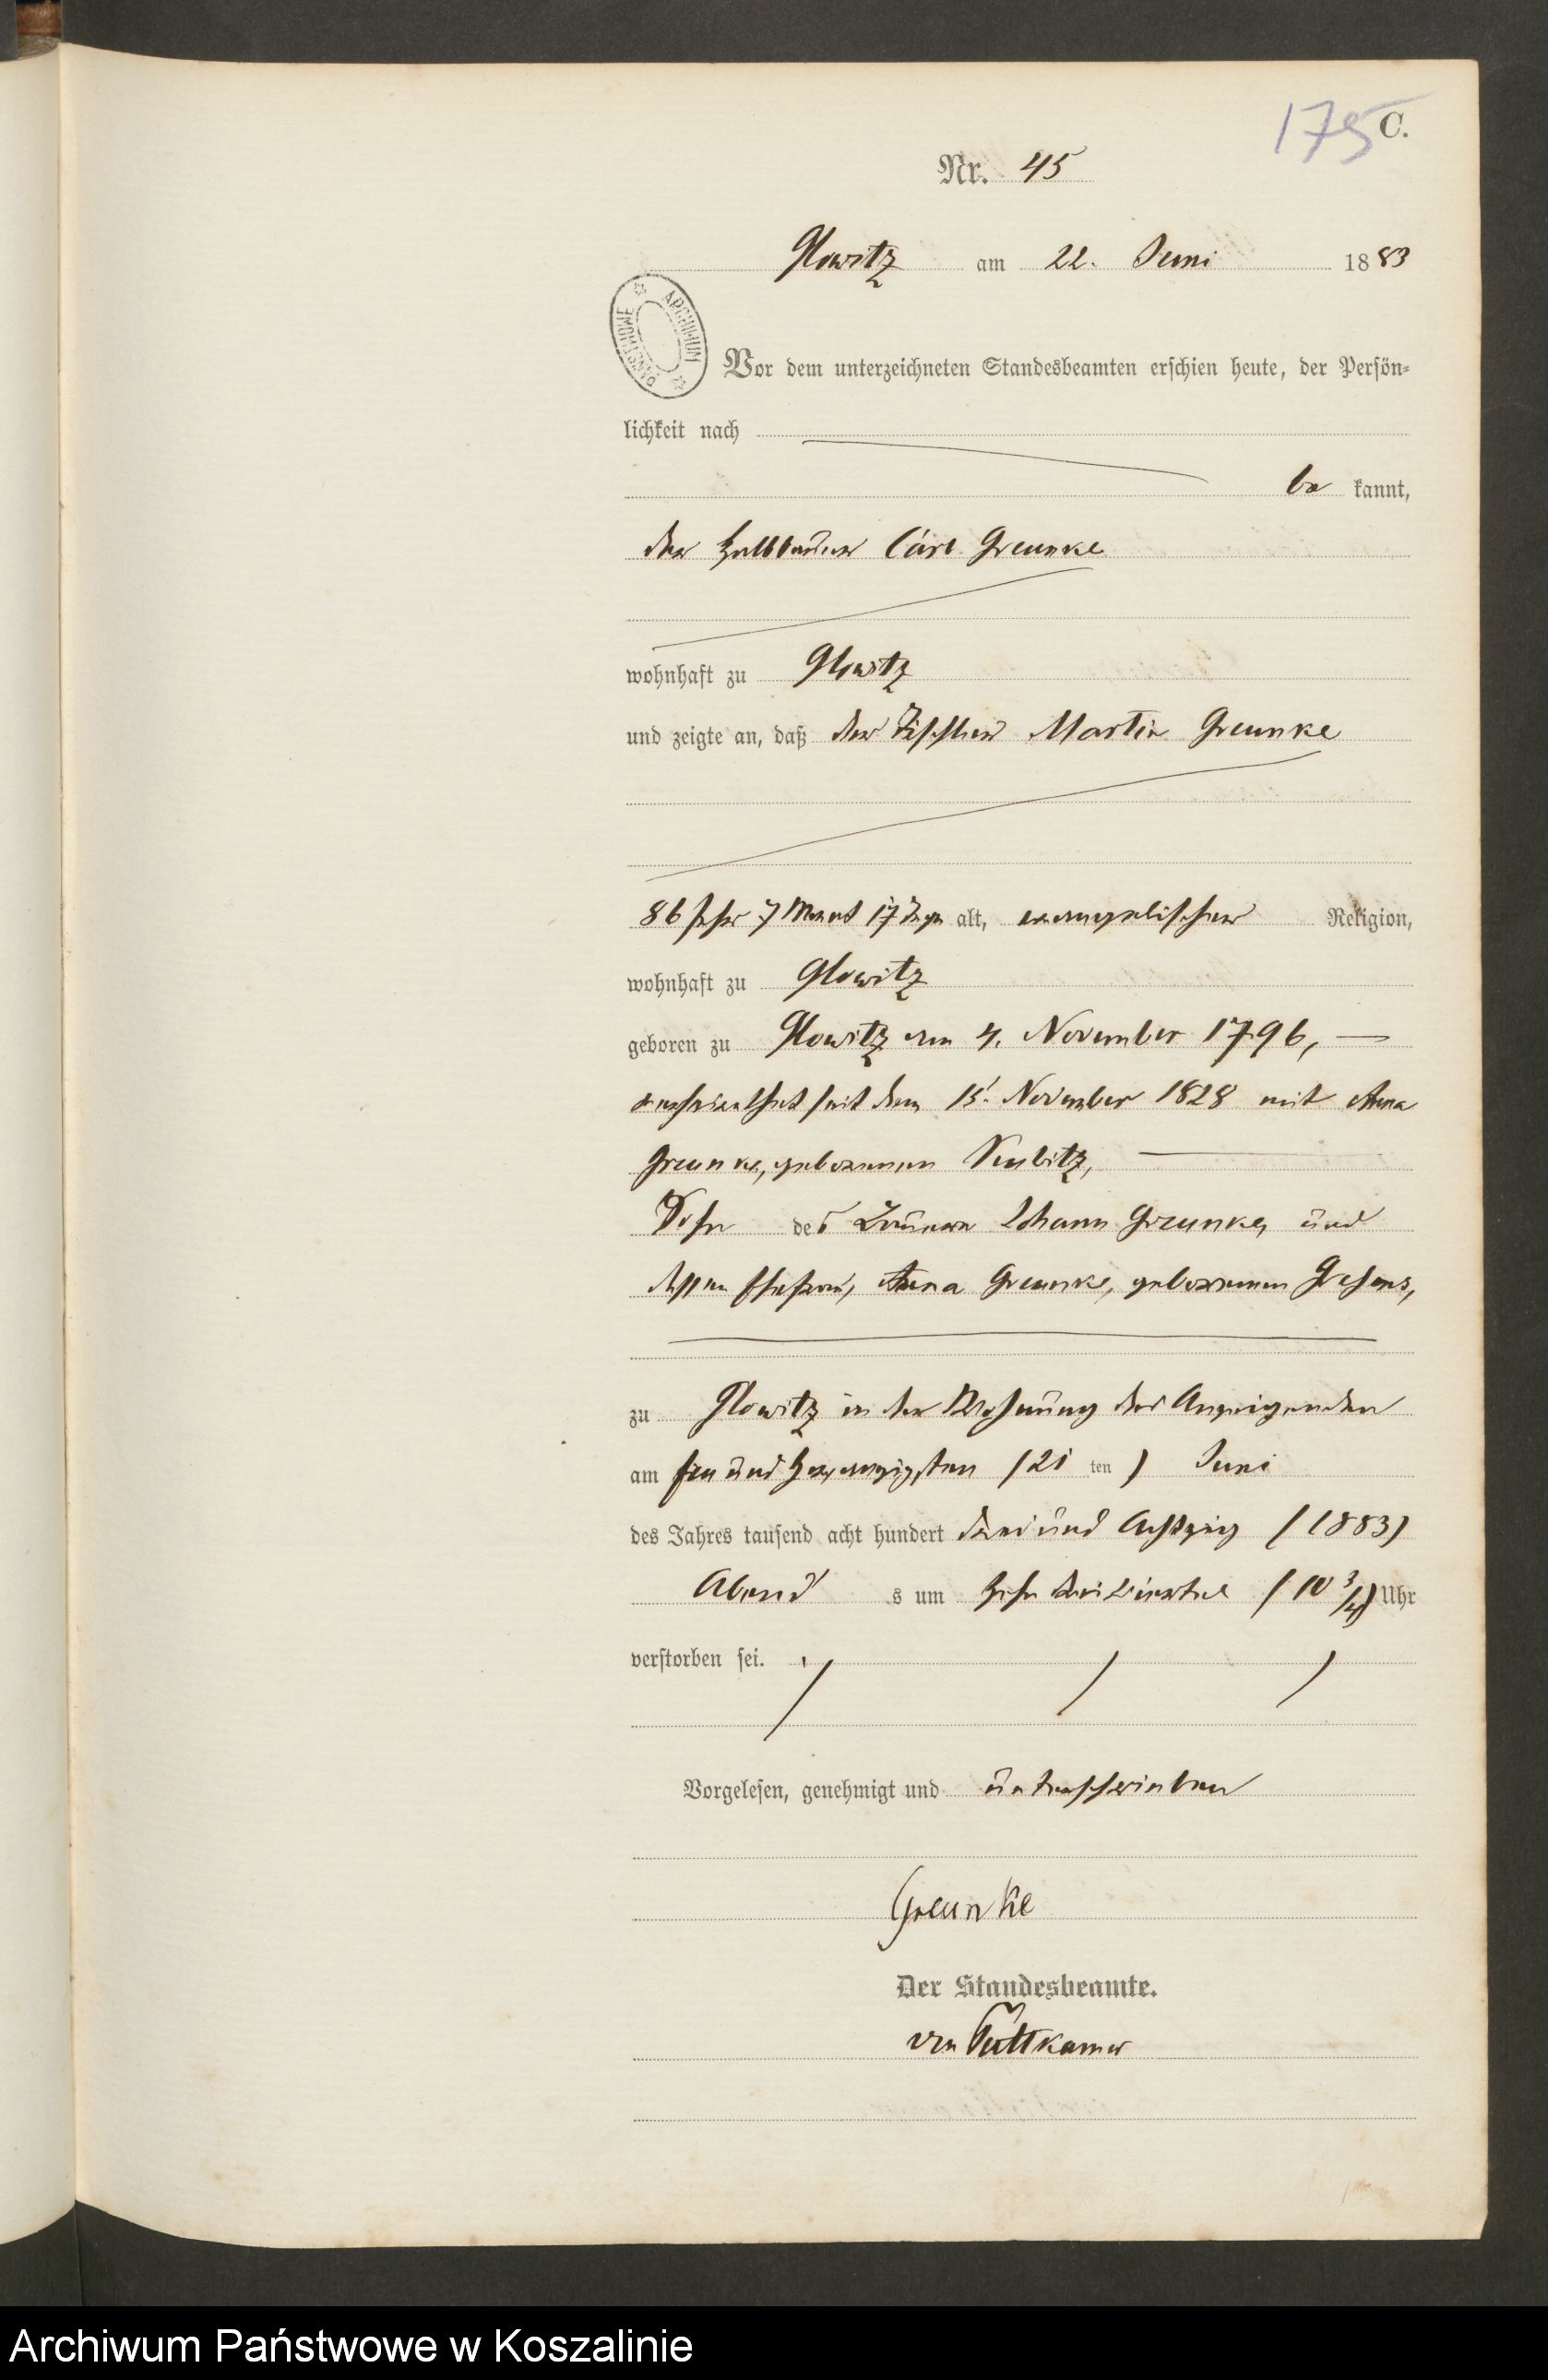 175
C.
Nr. 45
Glowitz am 22. Juni 1883
ARCHIWUM PAŃSTWOWE
Vor dem unterzeichneten Standesbeamten erschien heute, der Persön-
lichkeit nach
be kannt,
der Halbbauer Carl Greunke
wohnhaft zu Glowitz
und zeigte an, daß der Martin Greunke
86 Jahr 7 Monat 17 Tage alt, evangelischer Religion,
wohnhaft zu Glowitz
geboren zu Glowitz am 4. November 1796,
verheirathet seit dem 15. November 1828 mit Anna
Greunke, geborenen
Sohn des Bauern Johann Greunke, und
dessen Ehefrau, Anna Greunke, geborenen
zu Glowitz in der Wohnung des Anzeigenden
am ein und zwanzigsten (21 ten) Juni
des Jahres tausend acht hundert drei und Achtzig (1883)
Abend s um zehn drei Viertel (10 3/4) Uhr
verstorben sei.
Vorgelesen, genehmigt und unterschrieben
Greunke
Der Standesbeamte.
von Puttkamer
Archiwum Państwowe w Koszalinie